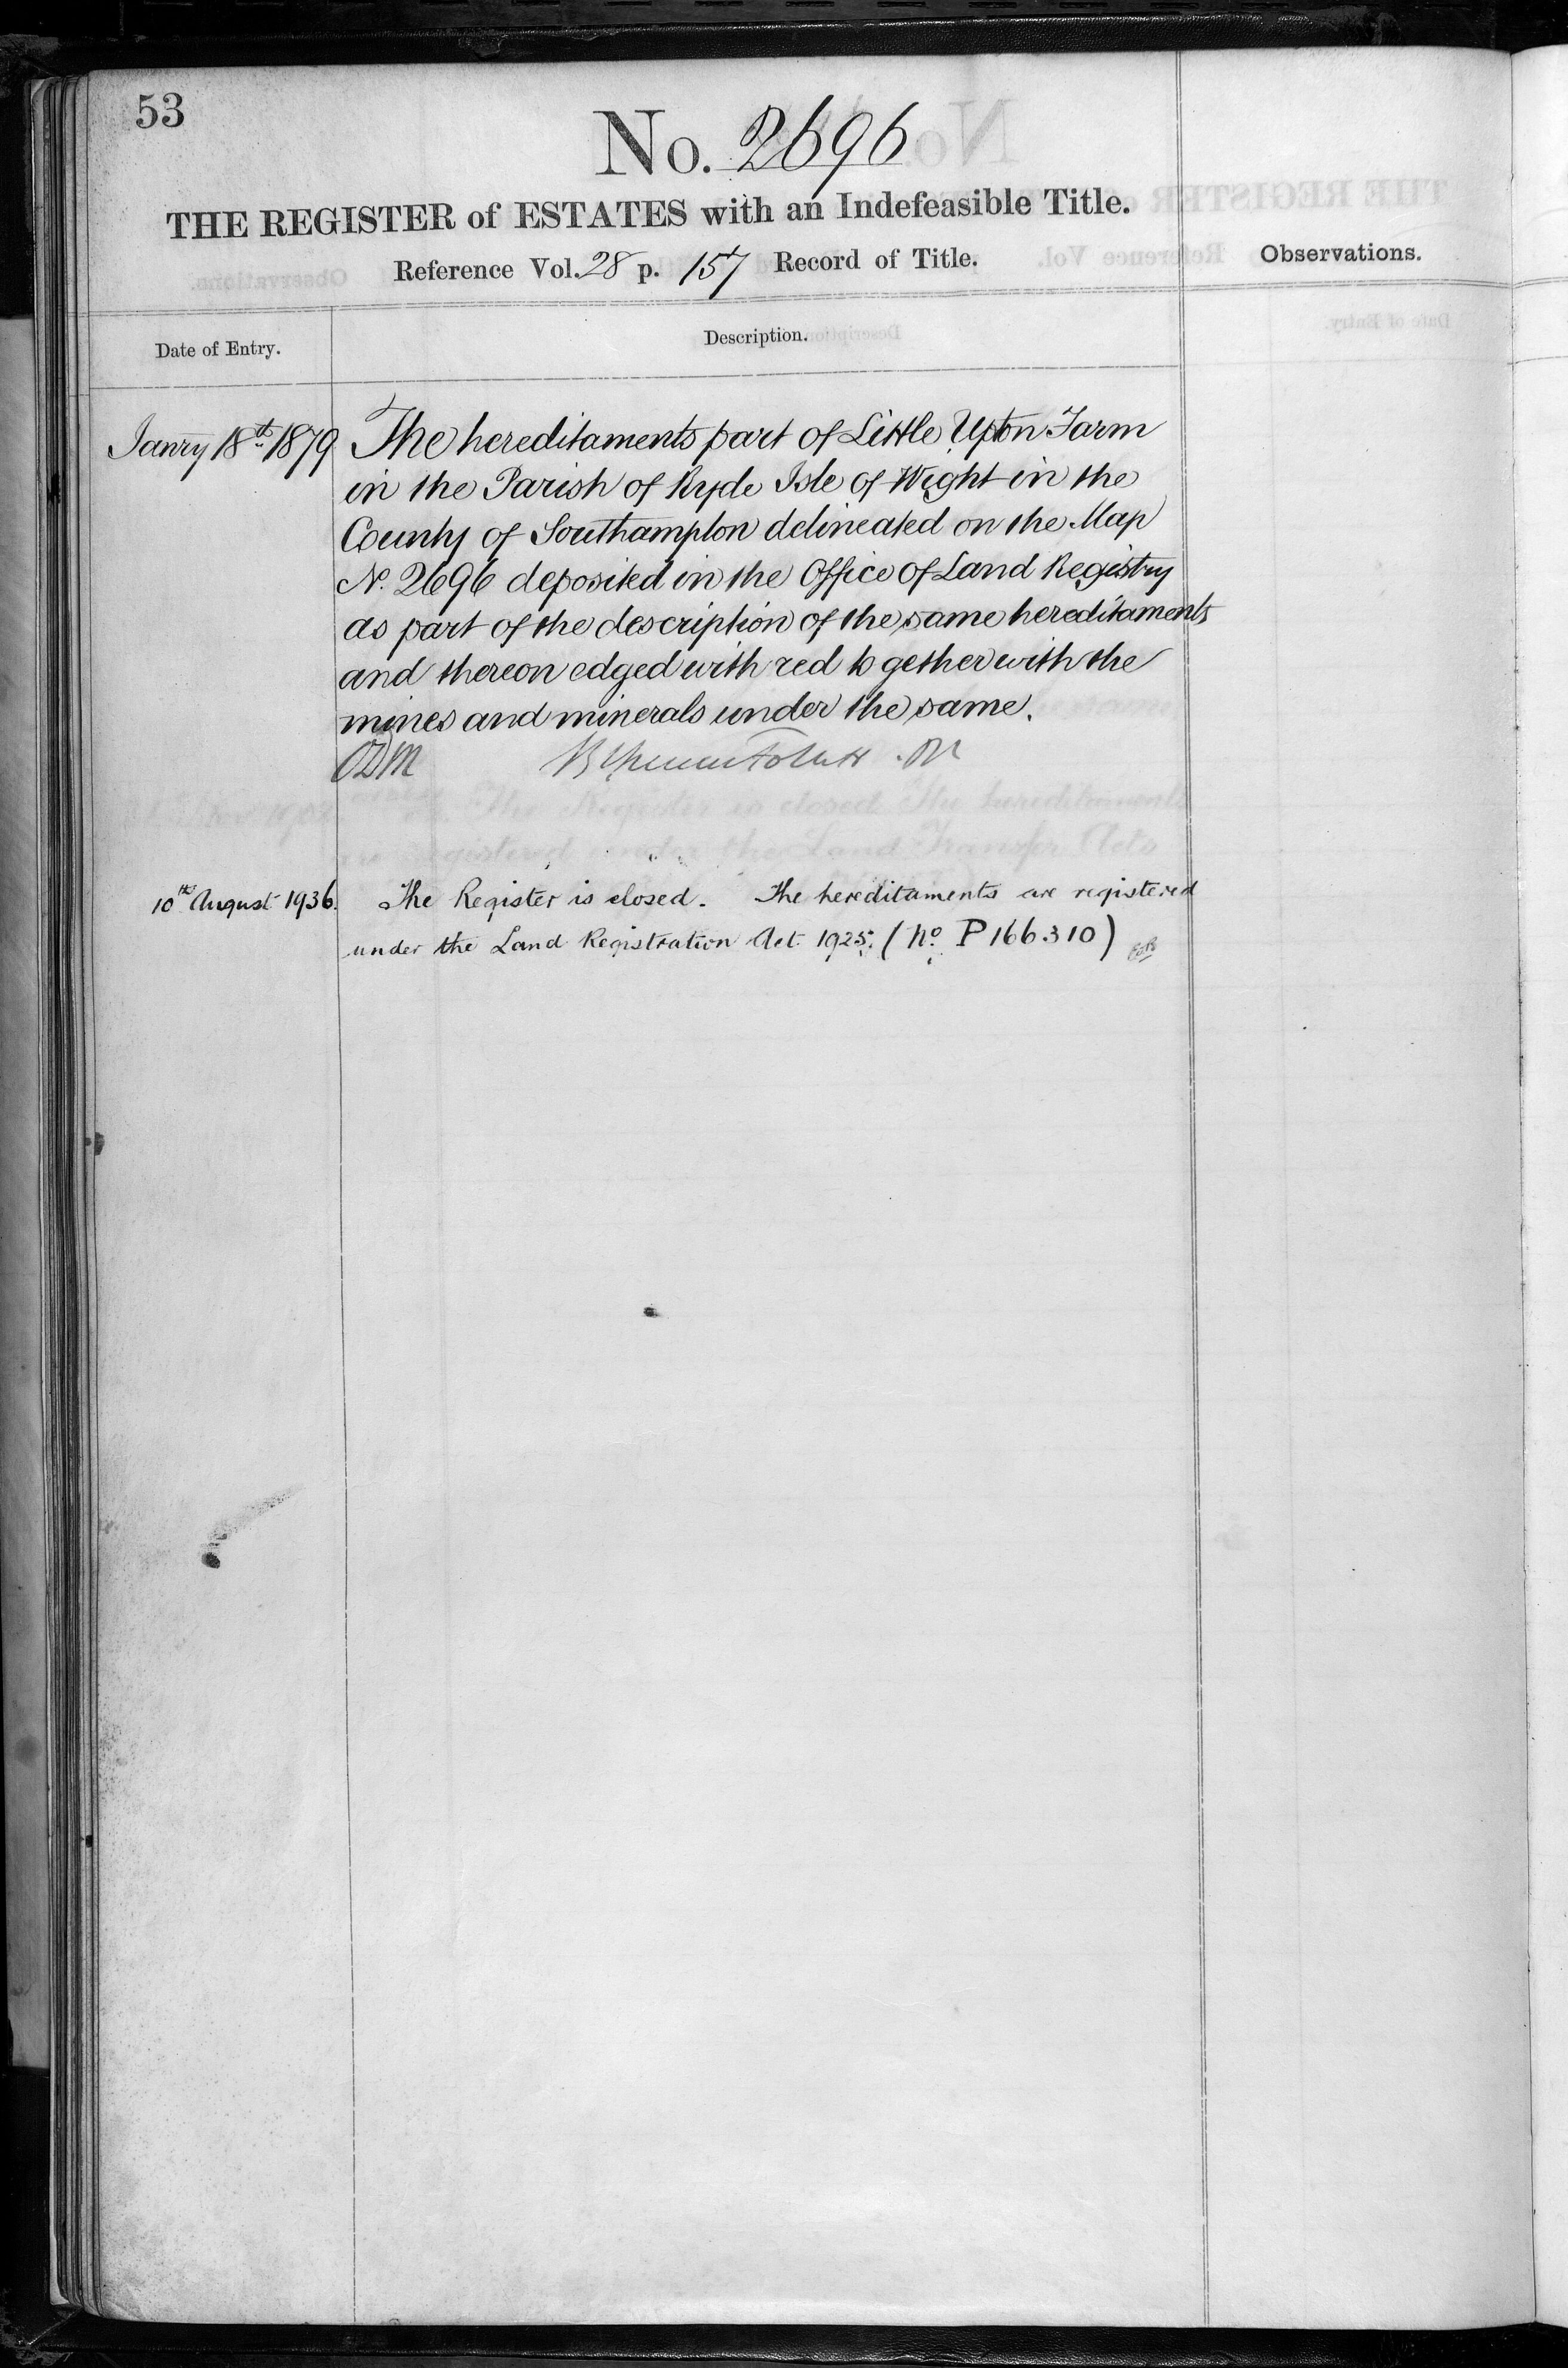 53
No. 2696
THE REGISTER of ESTATES with an Indefeasible Title.
Reference Vol. 28 p. 157 Record of Title.
Observations.
Date of Entry.
Description.
Janry 18th 1879
The hereditaments part of Little Upton Farm
in the Parish of Ryde Isle of Wight in the
County of Southampton delineated on the Map
No. 2696 deposited in the Office of Land Registry
as part of the description of the same hereditaments
and thereon edged with red together with the
mines and minerals under the same.
10th August 1936.
The Register is closed. The hereditaments are registered
under the Land Registration Act 1925. (No. P166310)